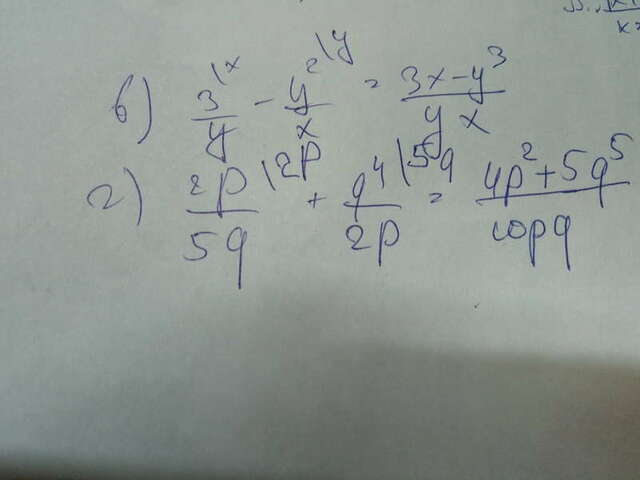 в) 3/y \x - y²/x \y = 3x-y³/yx
г) 2p/5q \2p + q⁴/2p \5q = 4p²+5q⁵/10pq